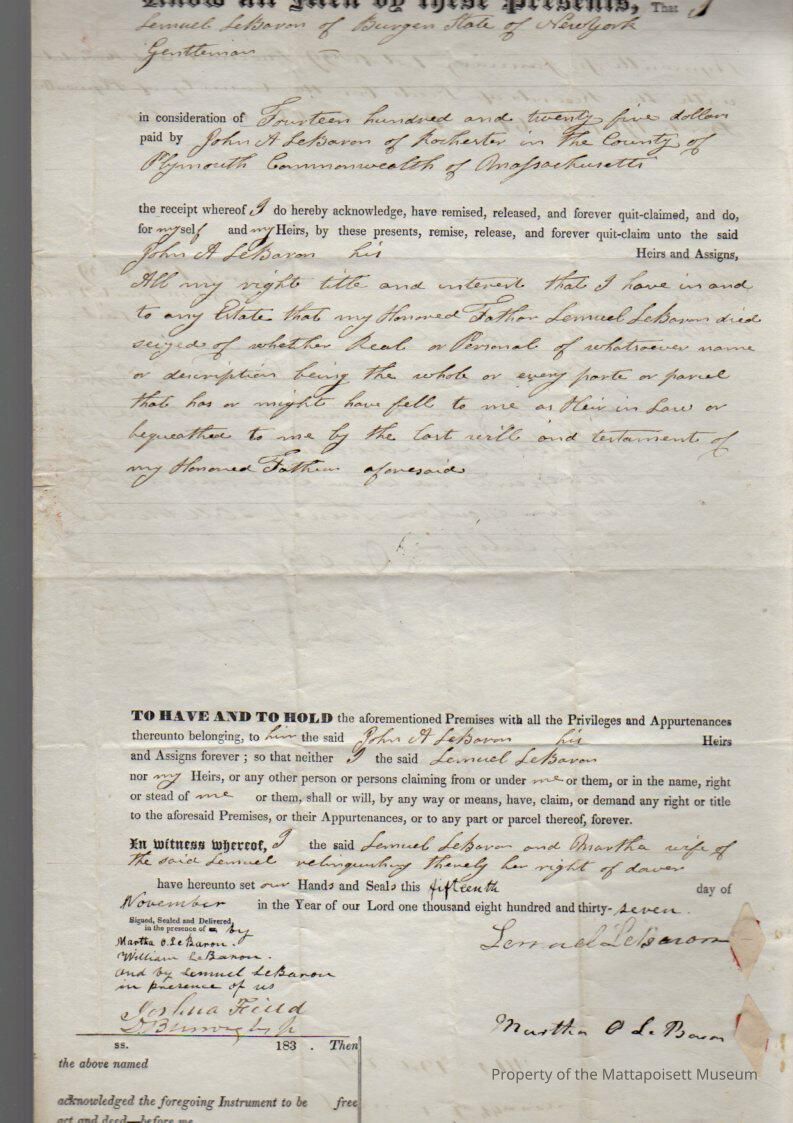 Know all Men by these Presents, That I
Lemuel LeBaron of Burgen State of New York
Gentleman
in consideration of Fourteen hundred and twenty five dollars
paid by John A LeBaron of Rochester in the County of
Plymouth Commonwealth of Massachusetts
the receipt whereof I do hereby acknowledge, have remised, released, and forever quit-claimed, and do,
for myself and my Heirs, by these presents, remise, release, and forever quit-claim unto the said
John A LeBaron his Heirs and Assigns,
All my right title and interest that I have in and
to any Estate that my Honored Father Lemuel LeBaron died
seized of whether Real or Personal of whatsoever name
or description being the whole or every parte or parcel
that has or might have fell to me as Heir in Law or
bequeathed to me by the Last will and testament of
my Honored Father aforesaid
TO HAVE AND TO HOLD the aforementioned Premises with all the Privileges and Appurtenances
thereunto belonging, to him the said John A LeBaron his Heirs
and Assigns forever; so that neither I the said Lemuel LeBaron
nor my Heirs, or any other person or persons claiming from or under me or them, or in the name, right
or stead of me or them, shall or will, by any way or means, have, claim, or demand any right or title
to the aforesaid Premises, or their Appurtenances, or to any part or parcel thereof, forever.
In witness whereof, I the said Lemuel LeBaron and Martha wife of
the said Lemuel relinquishing thereby her right of dower
have hereunto set our Hands and Seals this fifteenth day of
November in the Year of our Lord one thousand eight hundred and thirty-seven.
Signed, Sealed and Delivered,
in the presence of by
Martha O. LeBaron.
William LeBaron.
and by Lemuel LeBaron
in presence of us
Lemuel LeBaron
Joshua Field
Martha O LeBaron
ss. 183 . Then
the above named
acknowledged the foregoing Instrument to be free
act and deed—before me
Property of the Mattapoisett Museum